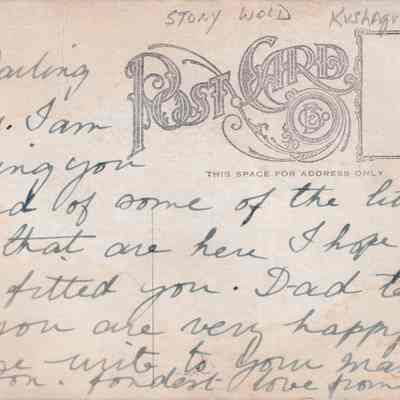 STONY WOLD
POST CARD.
THIS SPACE FOR ADDRESS ONLY
arling
. I am
ing you
d of some of the
that are here I hope
fitted you. Dad
you are very happy
write to your
on. fondest love from